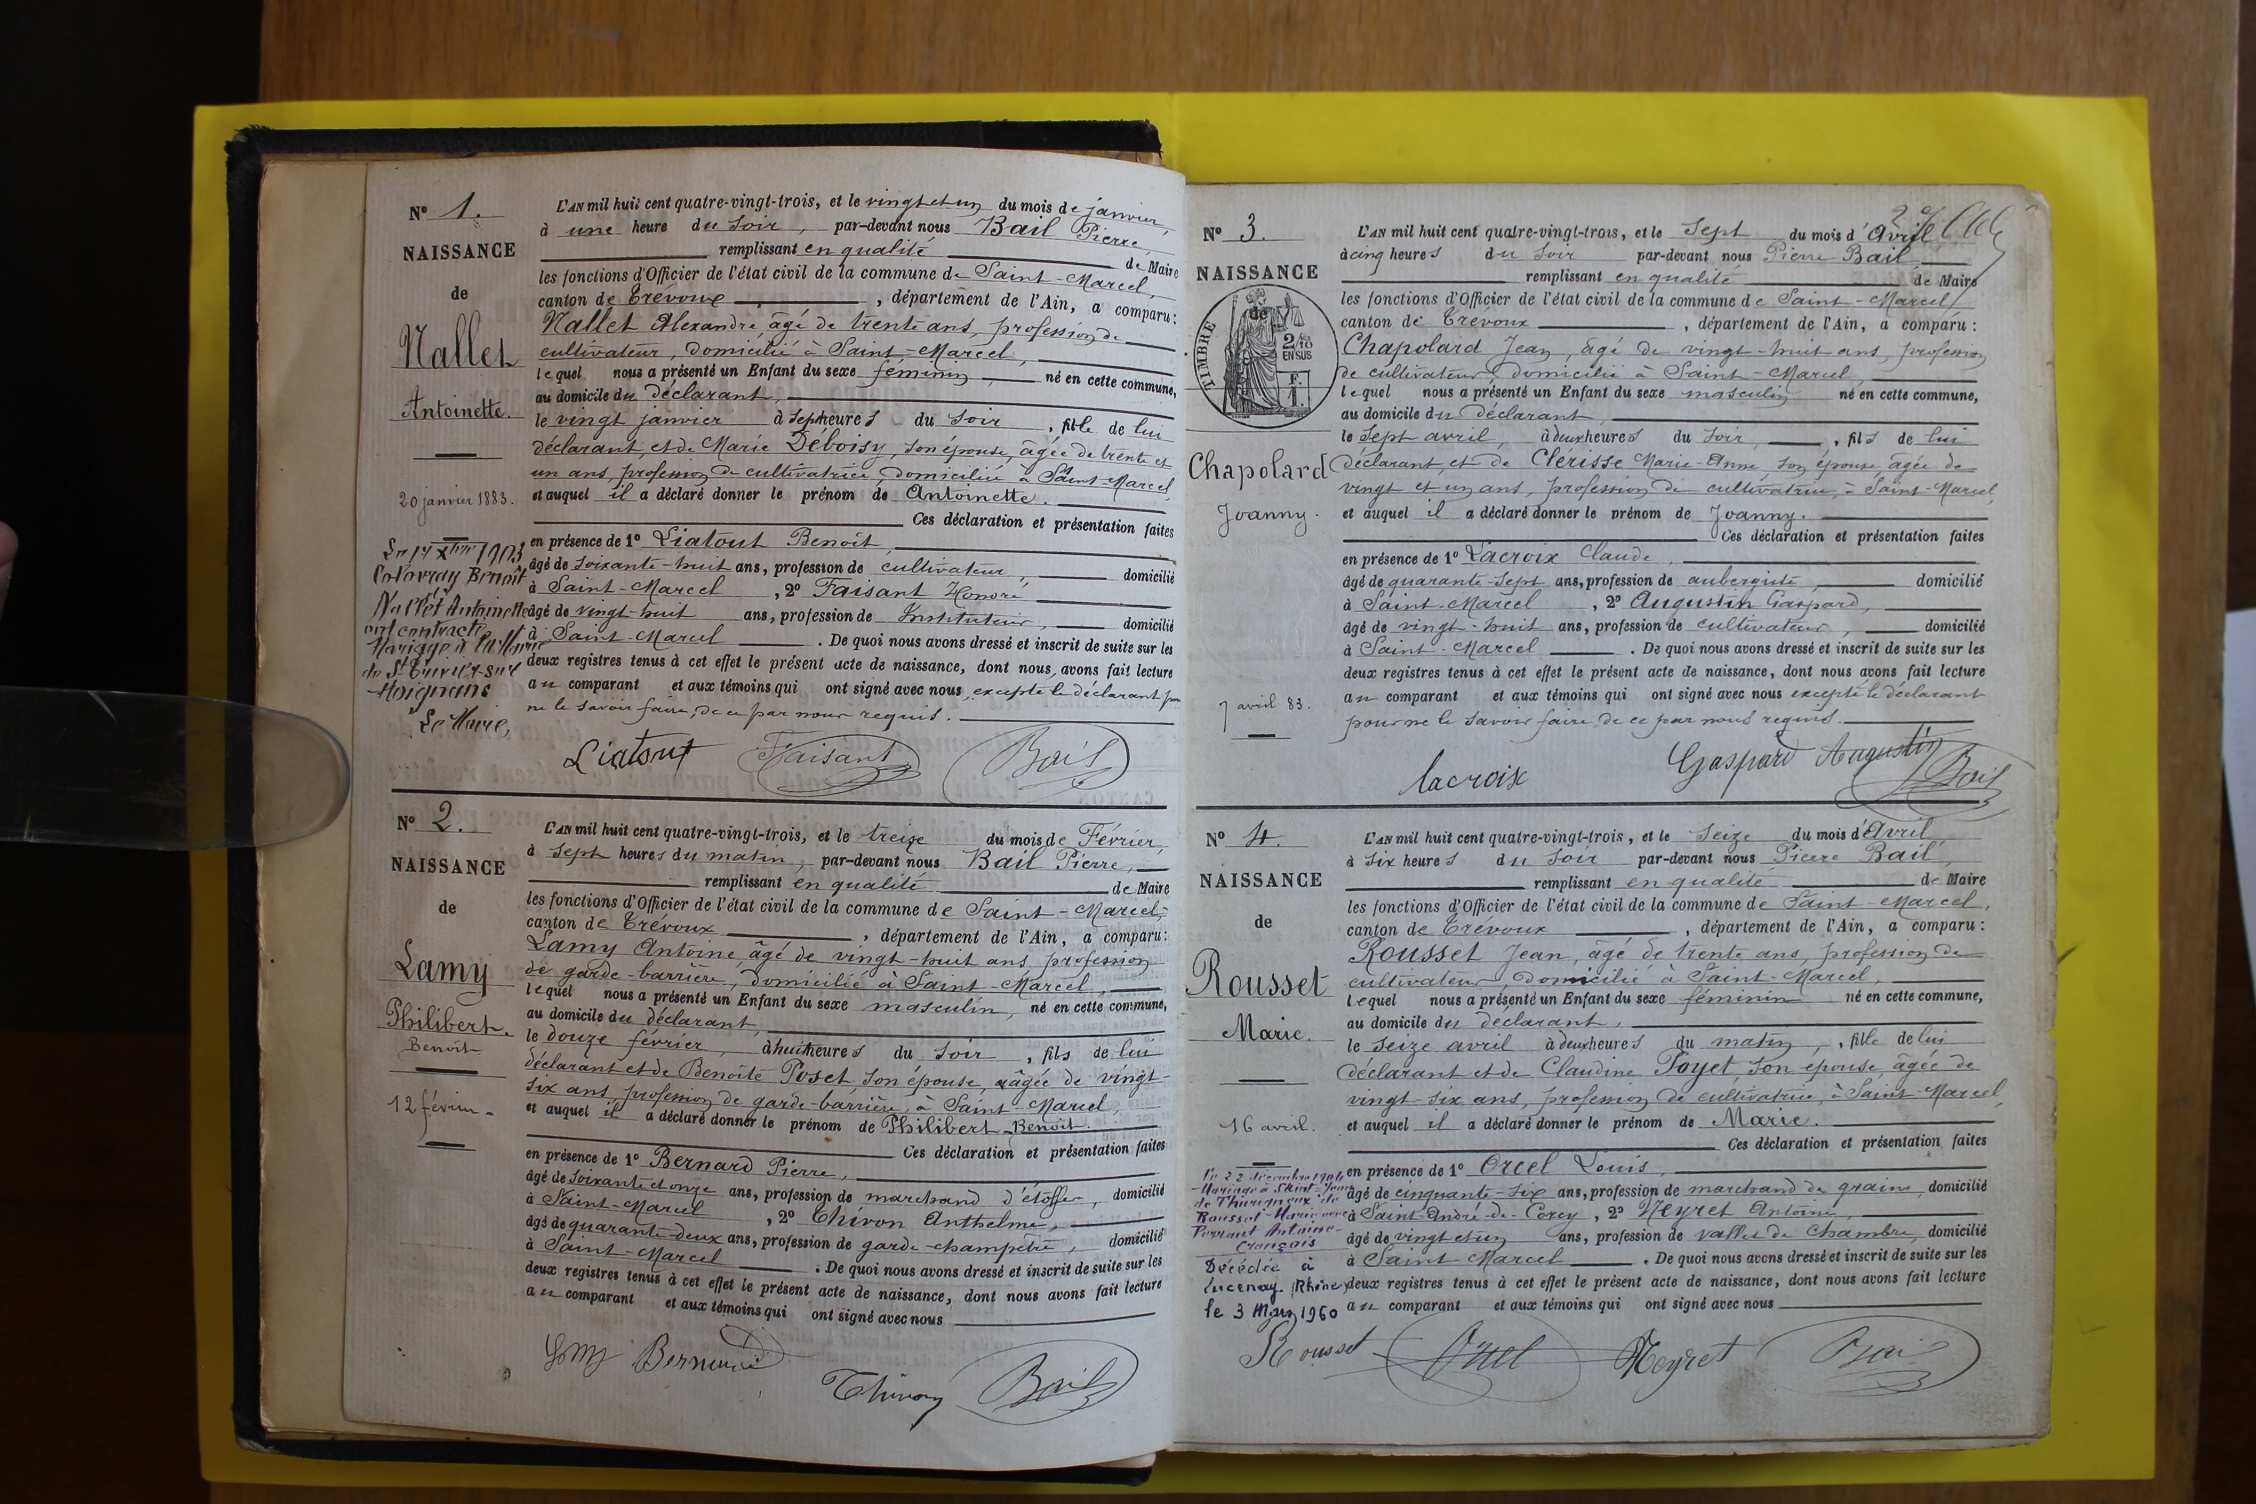 N° 1.
NAISSANCE
de
Nallet
Antoinette.
20 janvier 1883.
Le 17 Xbre 1903
Benoît
et
Nallet Antoinette
ont contracté
Mariage à la Mairie
de St
Le Maire,
L'AN mil huit cent quatre-vingt-trois, et le vingt et un du mois de janvier,
à une heure du soir, par-devant nous Bail Pierre,
remplissant en qualité de Maire
les fonctions d'Officier de l'état civil de la commune de Saint-Marcel,
canton de Trévoux, département de l'Ain, a comparu:
Nallet Alexandre âgé de trente ans, profession de
cultivateur, domicilié à Saint-Marcel,
lequel nous a présenté un Enfant du sexe féminin, né en cette commune,
au domicile du déclarant,
le vingt janvier à sept heures du soir, fille de lui
déclarant, et de Marie Déboisy, son épouse, âgée de trente et
un ans, profession de cultivatrice, domiciliée à Saint-Marcel,
et auquel il a déclaré donner le prénom de Antoinette.
Ces déclaration et présentation faites
en présence de 1° Liatout Benoît,
âgé de soixante-huit ans, profession de cultivateur, domicilié
à Saint-Marcel, 2° Faisant Honoré
âgé de vingt-huit ans, profession de Instituteur, domicilié
à Saint-Marcel. De quoi nous avons dressé et inscrit de suite sur les
deux registres tenus à cet effet le présent acte de naissance, dont nous avons fait lecture
au comparant et aux témoins qui ont signé avec nous, excepté le déclarant pour
ne le savoir faire, de ce par nous requis.
Liatout Faisant Bail
N° 2.
NAISSANCE
de
Lamy
Philibert.
Benoit
12 février
L'AN mil huit cent quatre-vingt-trois, et le treize du mois de Février,
à sept heures du matin, par-devant nous Bail Pierre,
remplissant en qualité de Maire
les fonctions d'Officier de l'état civil de la commune de Saint-Marcel,
canton de Trévoux, département de l'Ain, a comparu:
Lamy Antoine, âgé de vingt-huit ans, profession
de garde-barrière, domicilié à Saint-Marcel,
lequel nous a présenté un Enfant du sexe masculin, né en cette commune,
au domicile du déclarant,
le douze février, à huit heures du soir, fils de lui
déclarant et de Benoîte Poset, son épouse, âgée de vingt-
six ans, profession de garde-barrière, à Saint-Marcel,
et auquel il a déclaré donner le prénom de Philibert-Benoit.
Ces déclaration et présentation faites
en présence de 1° Bernard Pierre,
âgé de soixante et onze ans, profession de marchand d'étoffes, domicilié
à Saint-Marcel, 2° Thivon Anthelme,
âgé de quarante-deux ans, profession de garde-champêtre, domicilié
à Saint-Marcel. De quoi nous avons dressé et inscrit de suite sur les
deux registres tenus à cet effet le présent acte de naissance, dont nous avons fait lecture
au comparant et aux témoins qui ont signé avec nous
Lamy Bernard
Thivon Bail
N° 3.
NAISSANCE
de
TIMBRE
2/10
EN SUS
F.
1.
Chapolard
Joanny.
7 avril 83.
L'AN mil huit cent quatre-vingt-trois, et le sept du mois d'Avril
à cinq heures du soir par-devant nous Pierre Bail,
remplissant en qualité de Maire
les fonctions d'Officier de l'état civil de la commune de Saint-Marcel,
canton de Trévoux, département de l'Ain, a comparu:
Chapolard Jean, âgé de vingt-huit ans, profession
de cultivateur, domicilié à Saint-Marcel
lequel nous a présenté un Enfant du sexe masculin né en cette commune,
au domicile du déclarant,
le sept avril, à deux heures du soir, fils de lui
déclarant et de Clérisse Marie-Anne, son épouse, âgée de
vingt et un ans, profession de cultivatrice, à Saint-Marcel,
et auquel il a déclaré donner le prénom de Joanny.
Ces déclaration et présentation faites
en présence de 1° Lacroix Claude,
âgé de quarante-sept ans, profession de aubergiste, domicilié
à Saint-Marcel, 2° Augustin Gaspard,
âgé de vingt-huit ans, profession de cultivateur, domicilié
à Saint-Marcel. De quoi nous avons dressé et inscrit de suite sur les
deux registres tenus à cet effet le présent acte de naissance, dont nous avons fait lecture
au comparant et aux témoins qui ont signé avec nous excepté le déclarant
pour ne le savoir faire, de ce par nous requis.
Lacroix Gaspard Augustin Bail
N° 4.
NAISSANCE
de
Rousset
Marie.
16 avril.
le 22 décembre 1906
Mariage à Saint-Jean
de Thurigneux de
Rousset Marie avec
Perraut Antoine-
François
Décédée à
Lucenay (Rhône)
le 3 Mars 1960
L'AN mil huit cent quatre-vingt-trois, et le seize du mois d'Avril
à six heures du soir par-devant nous Pierre Bail,
remplissant en qualité de Maire
les fonctions d'Officier de l'état civil de la commune de Saint-Marcel,
canton de Trévoux, département de l'Ain, a comparu:
Rousset Jean, âgé de trente ans, profession de
cultivateur, domicilié à Saint-Marcel,
lequel nous a présenté un Enfant du sexe féminin né en cette commune,
au domicile du déclarant,
le seize avril à deux heures du matin, fille de lui
déclarant et de Claudine Poyet, son épouse, âgée de
vingt-six ans, profession de cultivatrice, à Saint-Marcel,
et auquel il a déclaré donner le prénom de Marie.
Ces déclaration et présentation faites
en présence de 1° Orcel Louis,
âgé de cinquante-six ans, profession de marchand de grains, domicilié
à Saint-André-de-Corcy, 2° Neyret Antoine,
âgé de vingt et un ans, profession de vallet de chambre, domicilié
à Saint-Marcel. De quoi nous avons dressé et inscrit de suite sur les
deux registres tenus à cet effet le présent acte de naissance, dont nous avons fait lecture
au comparant et aux témoins qui ont signé avec nous
Rousset Orcel Neyret Bail